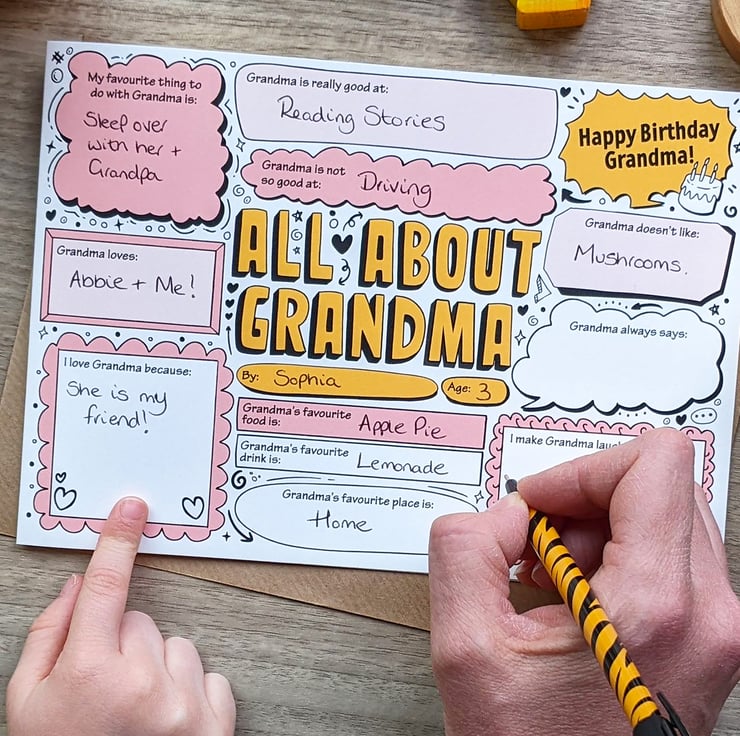 My favourite thing to
do with Grandma is:
Sleep over
with her +
Grandpa
Grandma is really good at:
Reading Stories
Happy Birthday
Grandma!
Grandma is not
so good at:
Driving
Grandma loves:
Abbie + Me!
ALL ABOUT
GRANDMA
Grandma doesn't like:
Mushrooms.
Grandma always says:
I love Grandma because:
She is my
friend!
By: Sophia
Age: 3
Grandma's favourite
food is:
Apple Pie
Grandma's favourite
drink is:
Lemonade
Grandma's favourite place is:
Home
I make Grandma